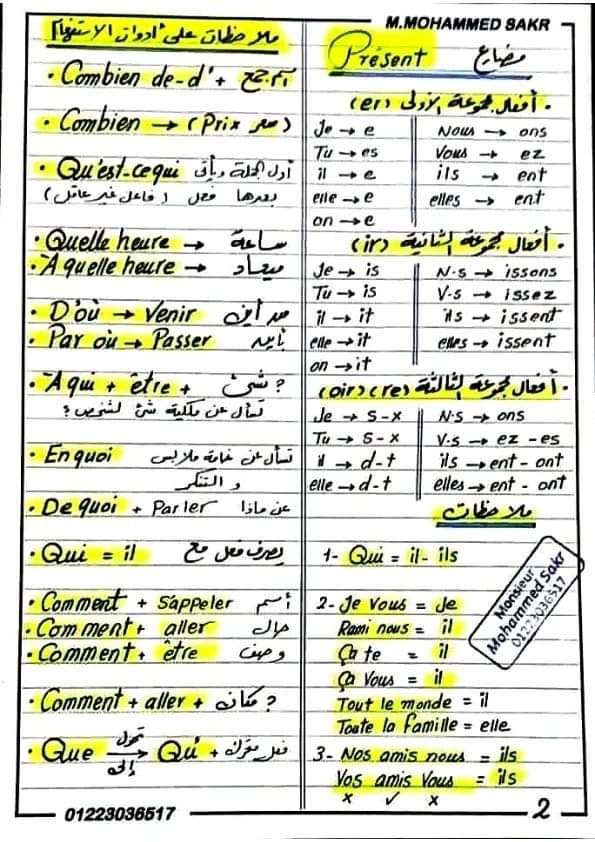 M.MOHAMMED SAKR
ملاحظات على أدوات الاستفهام
• Combien de-d' + اسم جمع
• Combien → (Prix سعر)
• Qu'est-ce qui أول الجملة ويأتى
بعدها فعل (فاعل غير عاقل)
• Quelle heure → ساعة
• A quelle heure → ميعاد
• D'où → Venir من أين
• Par où → Passer
• A qui + être + شئ ?
تسأل عن ملكية شئ لشخص؟
• En quoi تسأل عن خامة ملابس
و التنكر
• De quoi + Parler عن ماذا
• Qui = il يصرف فعل مع
• Comment + S'appeler أسم
• Comment + aller حال
• Comment + être وصف
• Comment + aller + مكان ?
• Que تحول إلى Qui + فعل
01223036517
Présent مضارع
• أفعال مجموعة الأولى (er)
Je → e Nous → ons
Tu → es Vous → ez
il → e ils → ent
elle → e elles → ent
on → e
• أفعال مجموعة الثانية (ir)
Je → is N.s → issons
Tu → is V.s → issez
il → it ils → issent
elle → it elles → issent
on → it
• أفعال مجموعة الثالثة (re) (oir)
Je → s-x N.s → ons
Tu → s-x V.s → ez - es
il → d-t ils → ent - ont
elle → d-t elles → ent - ont
ملاحظات
1- Qui = il- ils
2- Je Vous = Je
Rami nous = il
Ça te = il
Ça Vous = il
Tout le monde = il
Toute la famille = elle
3- Nos amis nous = ils
Vos amis Vous = ils
× ✓ ×
Monsieur
Mohammed Sakr
01223036517
2